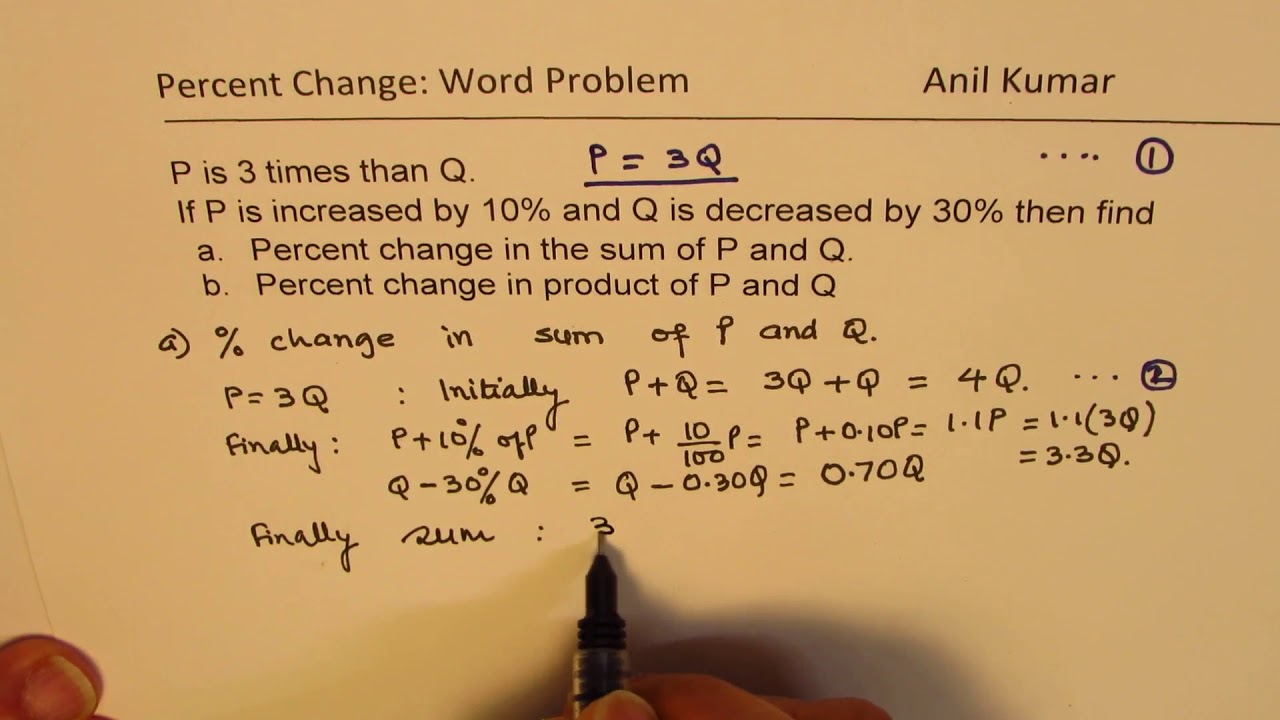 Percent Change: Word Problem Anil Kumar
P is 3 times than Q. P = 3Q .... ①
If P is increased by 10% and Q is decreased by 30% then find
a. Percent change in the sum of P and Q.
b. Percent change in product of P and Q
a) % change in sum of P and Q.
P = 3Q : Initially P + Q = 3Q + Q = 4Q. ... ②
Finally: P + 10% of P = P + 10/100 P = P + 0.10P = 1.1P = 1.1(3Q)
= 3.3Q.
Q - 30% Q = Q - 0.30Q = 0.70Q
Finally sum : 3